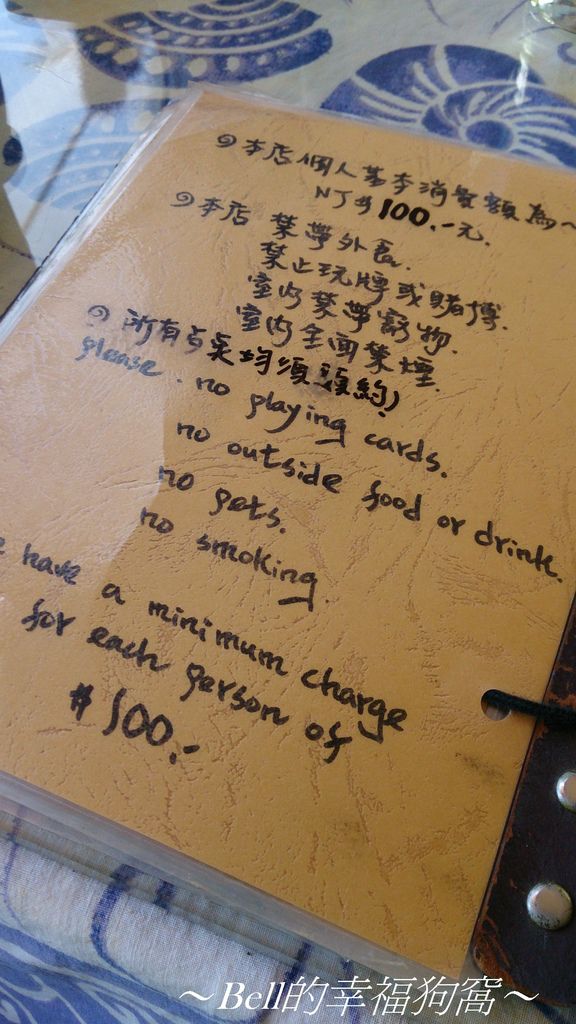 本店個人基本消費額為~
NT$100.-元.
本店 禁帶外食.
禁止玩牌或賭博.
室內禁帶寵物.
室內全面禁煙.
所有點均須預約)
please. no playing cards.
no outside food or drink.
no pets.
no smoking.
have a minimum charge
for each person of
$100.-
~Bell的幸福狗窩~